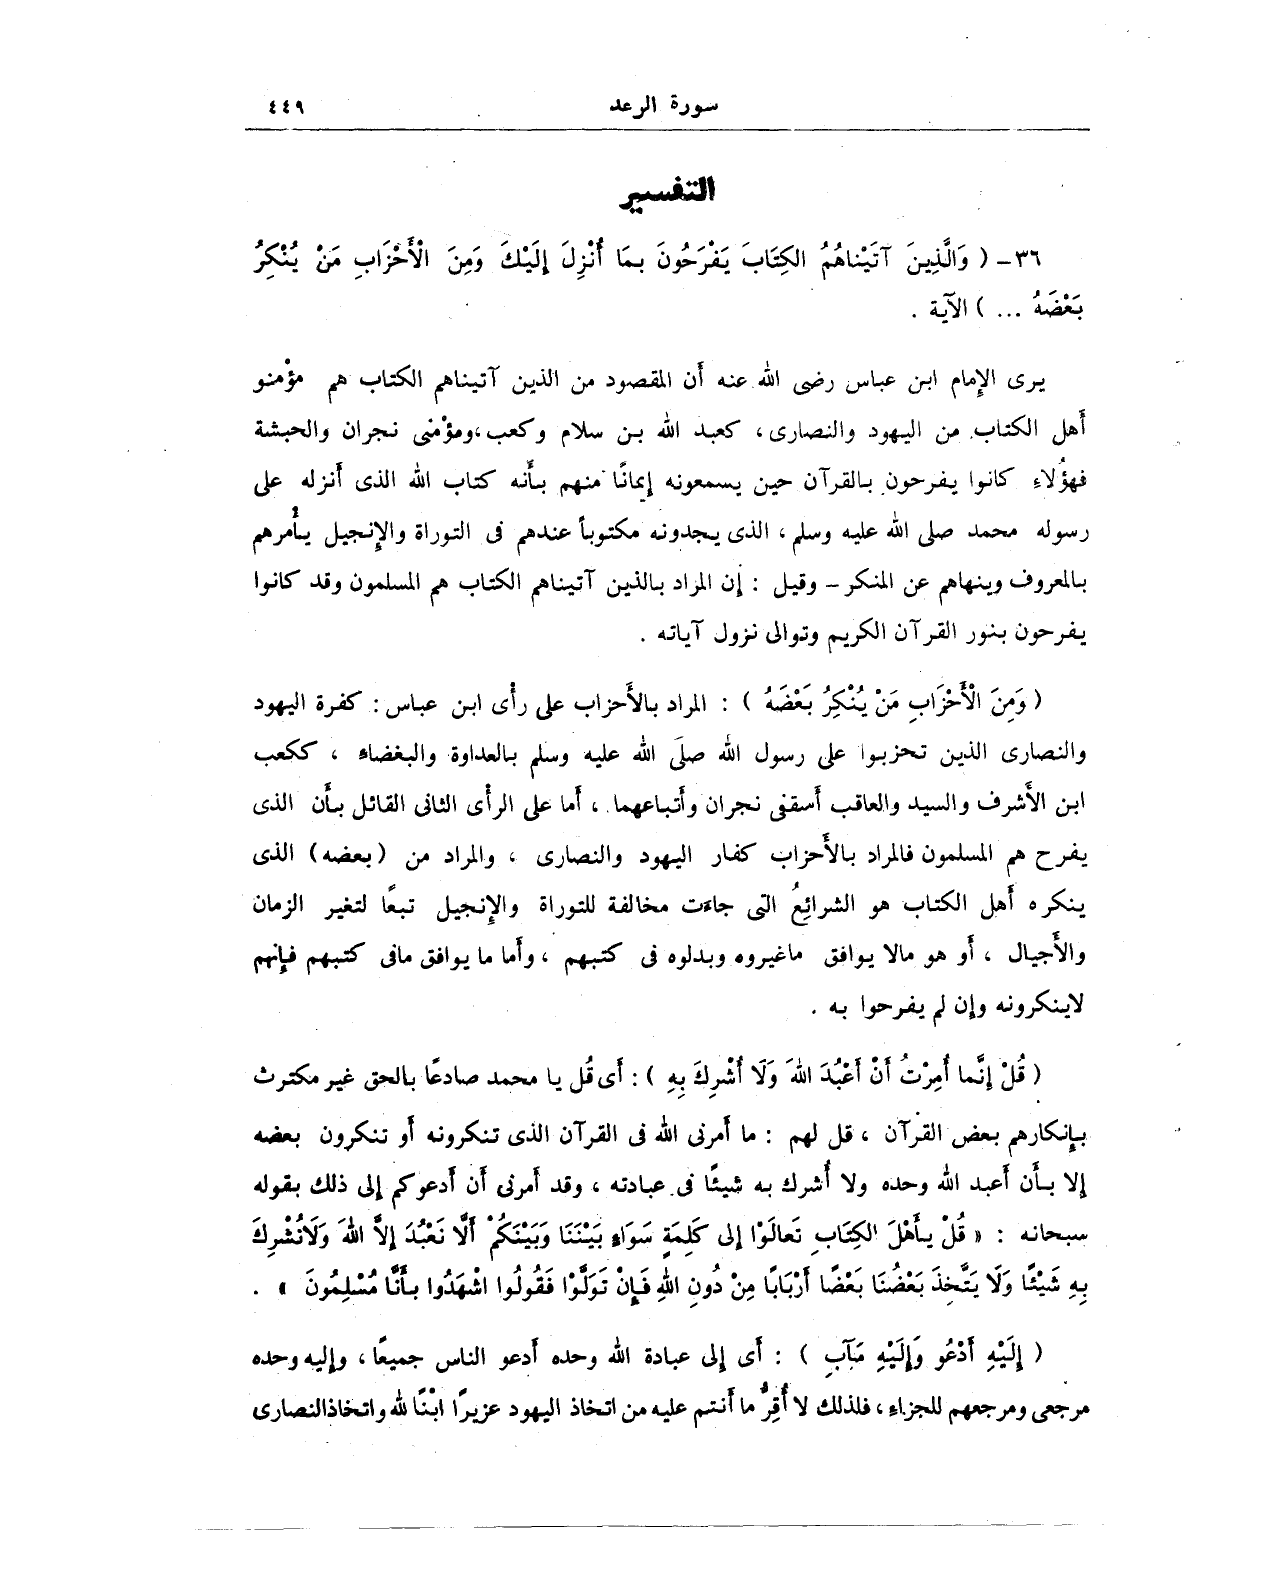 سورة الرعد ٤٤٩
التفسير
٣٦ـ ( وَالَّذِينَ آتَيْنَاهُمُ الكِتَابَ يَفْرَحُونَ بِمَا أُنْزِلَ إِلَيْكَ وَمِنَ الْأَحْزَابِ مَنْ يُنْكِرُ
بَعْضَهُ ... ) الآية .
يرى الإمام ابن عباس رضى الله عنه أن المقصود من الذين آتيناهم الكتاب هم مؤمنو
أهل الكتاب من اليهود والنصارى، كعبد الله بن سلام وكعب،ومؤمنى نجران والحبشة
فهؤلاء كانوا يفرحون بالقرآن حين يسمعونه إيمانًا منهم بأنه كتاب الله الذى أنزله على
رسوله محمد صلى الله عليه وسلم، الذى يجدونه مكتوباً عندهم فى التوراة والإنجيل يأمرهم
بالمعروف وينهاهم عن المنكر – وقيل : إن المراد بالذين آتيناهم الكتاب هم المسلمون وقد كانوا
يفرحون بنور القرآن الكريم وتوالى نزول آياته .
( وَمِنَ الْأَحْزَابِ مَنْ يُنْكِرُ بَعْضَهُ ) : المراد بالأَحزاب على رأى ابن عباس : كفرة اليهود
والنصارى الذين تحزبوا على رسول الله صلَى الله عليه وسلم بالعداوة والبغضاء ، ككعب
ابن الأشرف والسيد والعاقب أسقفى نجران وأتباعهما ، أما على الرأى الثانى القائل بأن الذى
يفرح هم المسلمون فالمراد بالأحزاب كفار اليهود والنصارى ، والمراد من (بعضه) الذى
ينكره أهل الكتاب هو الشرائعُ التى جاءت مخالفة للتوراة والإنجيل تبعًا لتغير الزمان
والأجيال ، أو هو مالا يوافق ماغيروه وبدلوه فى كتبهم ، وأما ما يوافق مافى كتبهم فإنهم
لاينكرونه وإن لم يفرحوا به .
( قُلْ إِنَّما أُمِرْتُ أَنْ أَعْبُدَ اللهَ وَلَا أُشْرِكَ بِهِ ) : أى قُل يا محمد صادعًا بالحق غير مكترث
بإنكارهم بعض القرآن ، قل لهم : ما أمرنى الله فى القرآن الذى تنكرونه أو تنكرون بعضه
إلا بأن أعبد الله وحده ولا أُشرك به شيئًا فى عبادته ، وقد أمرنى أن أدعوكم إلى ذلك بقوله
سبحانه : « قُلْ يأَهْلَ الكِتَابِ تَعالَوْا إلى كَلِمَةٍ سَوَاءٍ بَيْنَنَا وَبَيْنَكُمْ أَلَّا نَعْبُدَ إلاَّ اللهَ وَلَانُشْرِكَ
بِهِ شَيْئًا وَلَا يَتَّخِذَ بَعْضُنَا بَعْضًا أَرْبَابًا مِنْ دُونِ اللهِ فَإِنْ تَوَلَّوْا فَقُولُوا اشْهَدُوا بِأَنَّا مُسْلِمُونَ » .
( إِلَيْهِ أَدْعُو وَإِلَيْهِ مَآبِ ) : أى إلى عبادة الله وحده أدعو الناس جميعًا، وإليه وحده
مرجعى ومرجعهم للجزاء، فلذلك لا أُقِرُّ ما أنتم عليه من اتخاذ اليهود عزيرًا ابْنًا لله واتخاذالنصارى